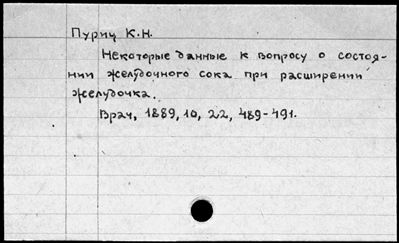 Пуриц К.Н.
Некоторые данные к вопросу о состоя-
нии желудочного сока при расширении
желудочка.
Врач, 1889, 10, 22, 489-491.